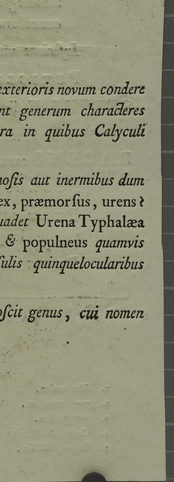 exterioris novum condere
nt generum characteres
ra in quibus Calyculi
nosis aut inermibus dum
ex, præmorsus, urens?
uadet Urena Typhalæa
& populneus quamvis
sulis quinquelocularibus
oscit genus, cui nomen